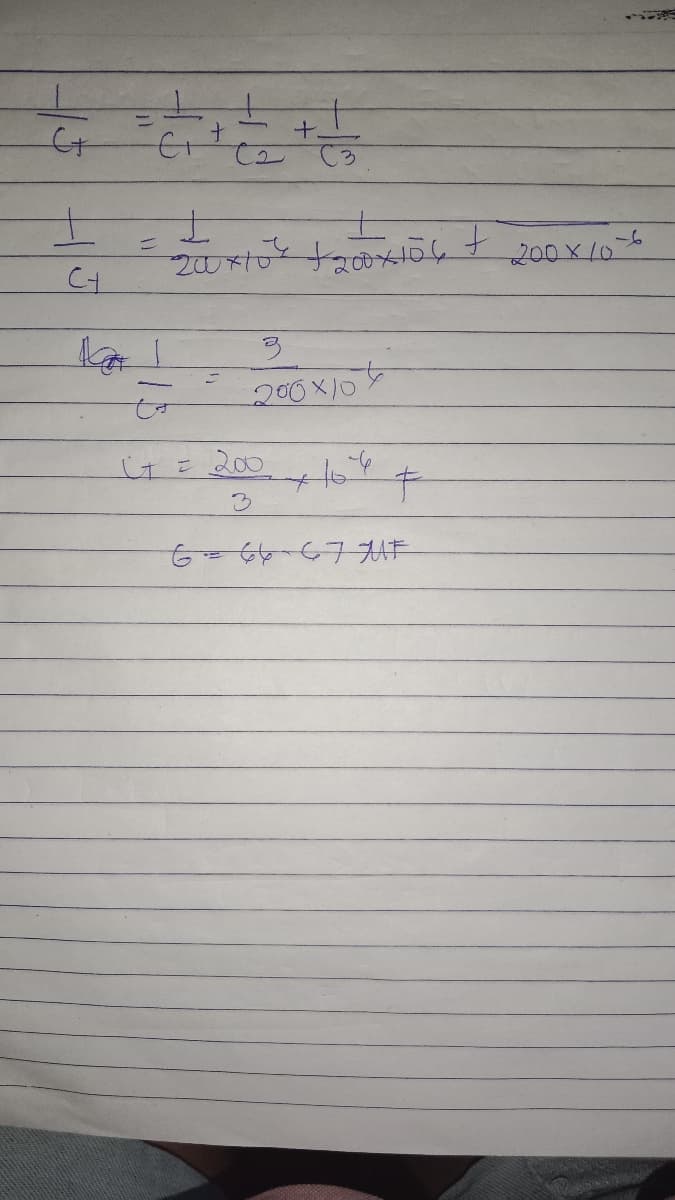 1/Ct = 1/C1 + 1/C2 + 1/C3
1/Ct = 1/200×10^-6 + 1/200×10^-6 + /200×10^-6
1/Ct = 3/200×10^-6
Ct = 200/3 × 10^-6 F
Ct = 66.67 μF